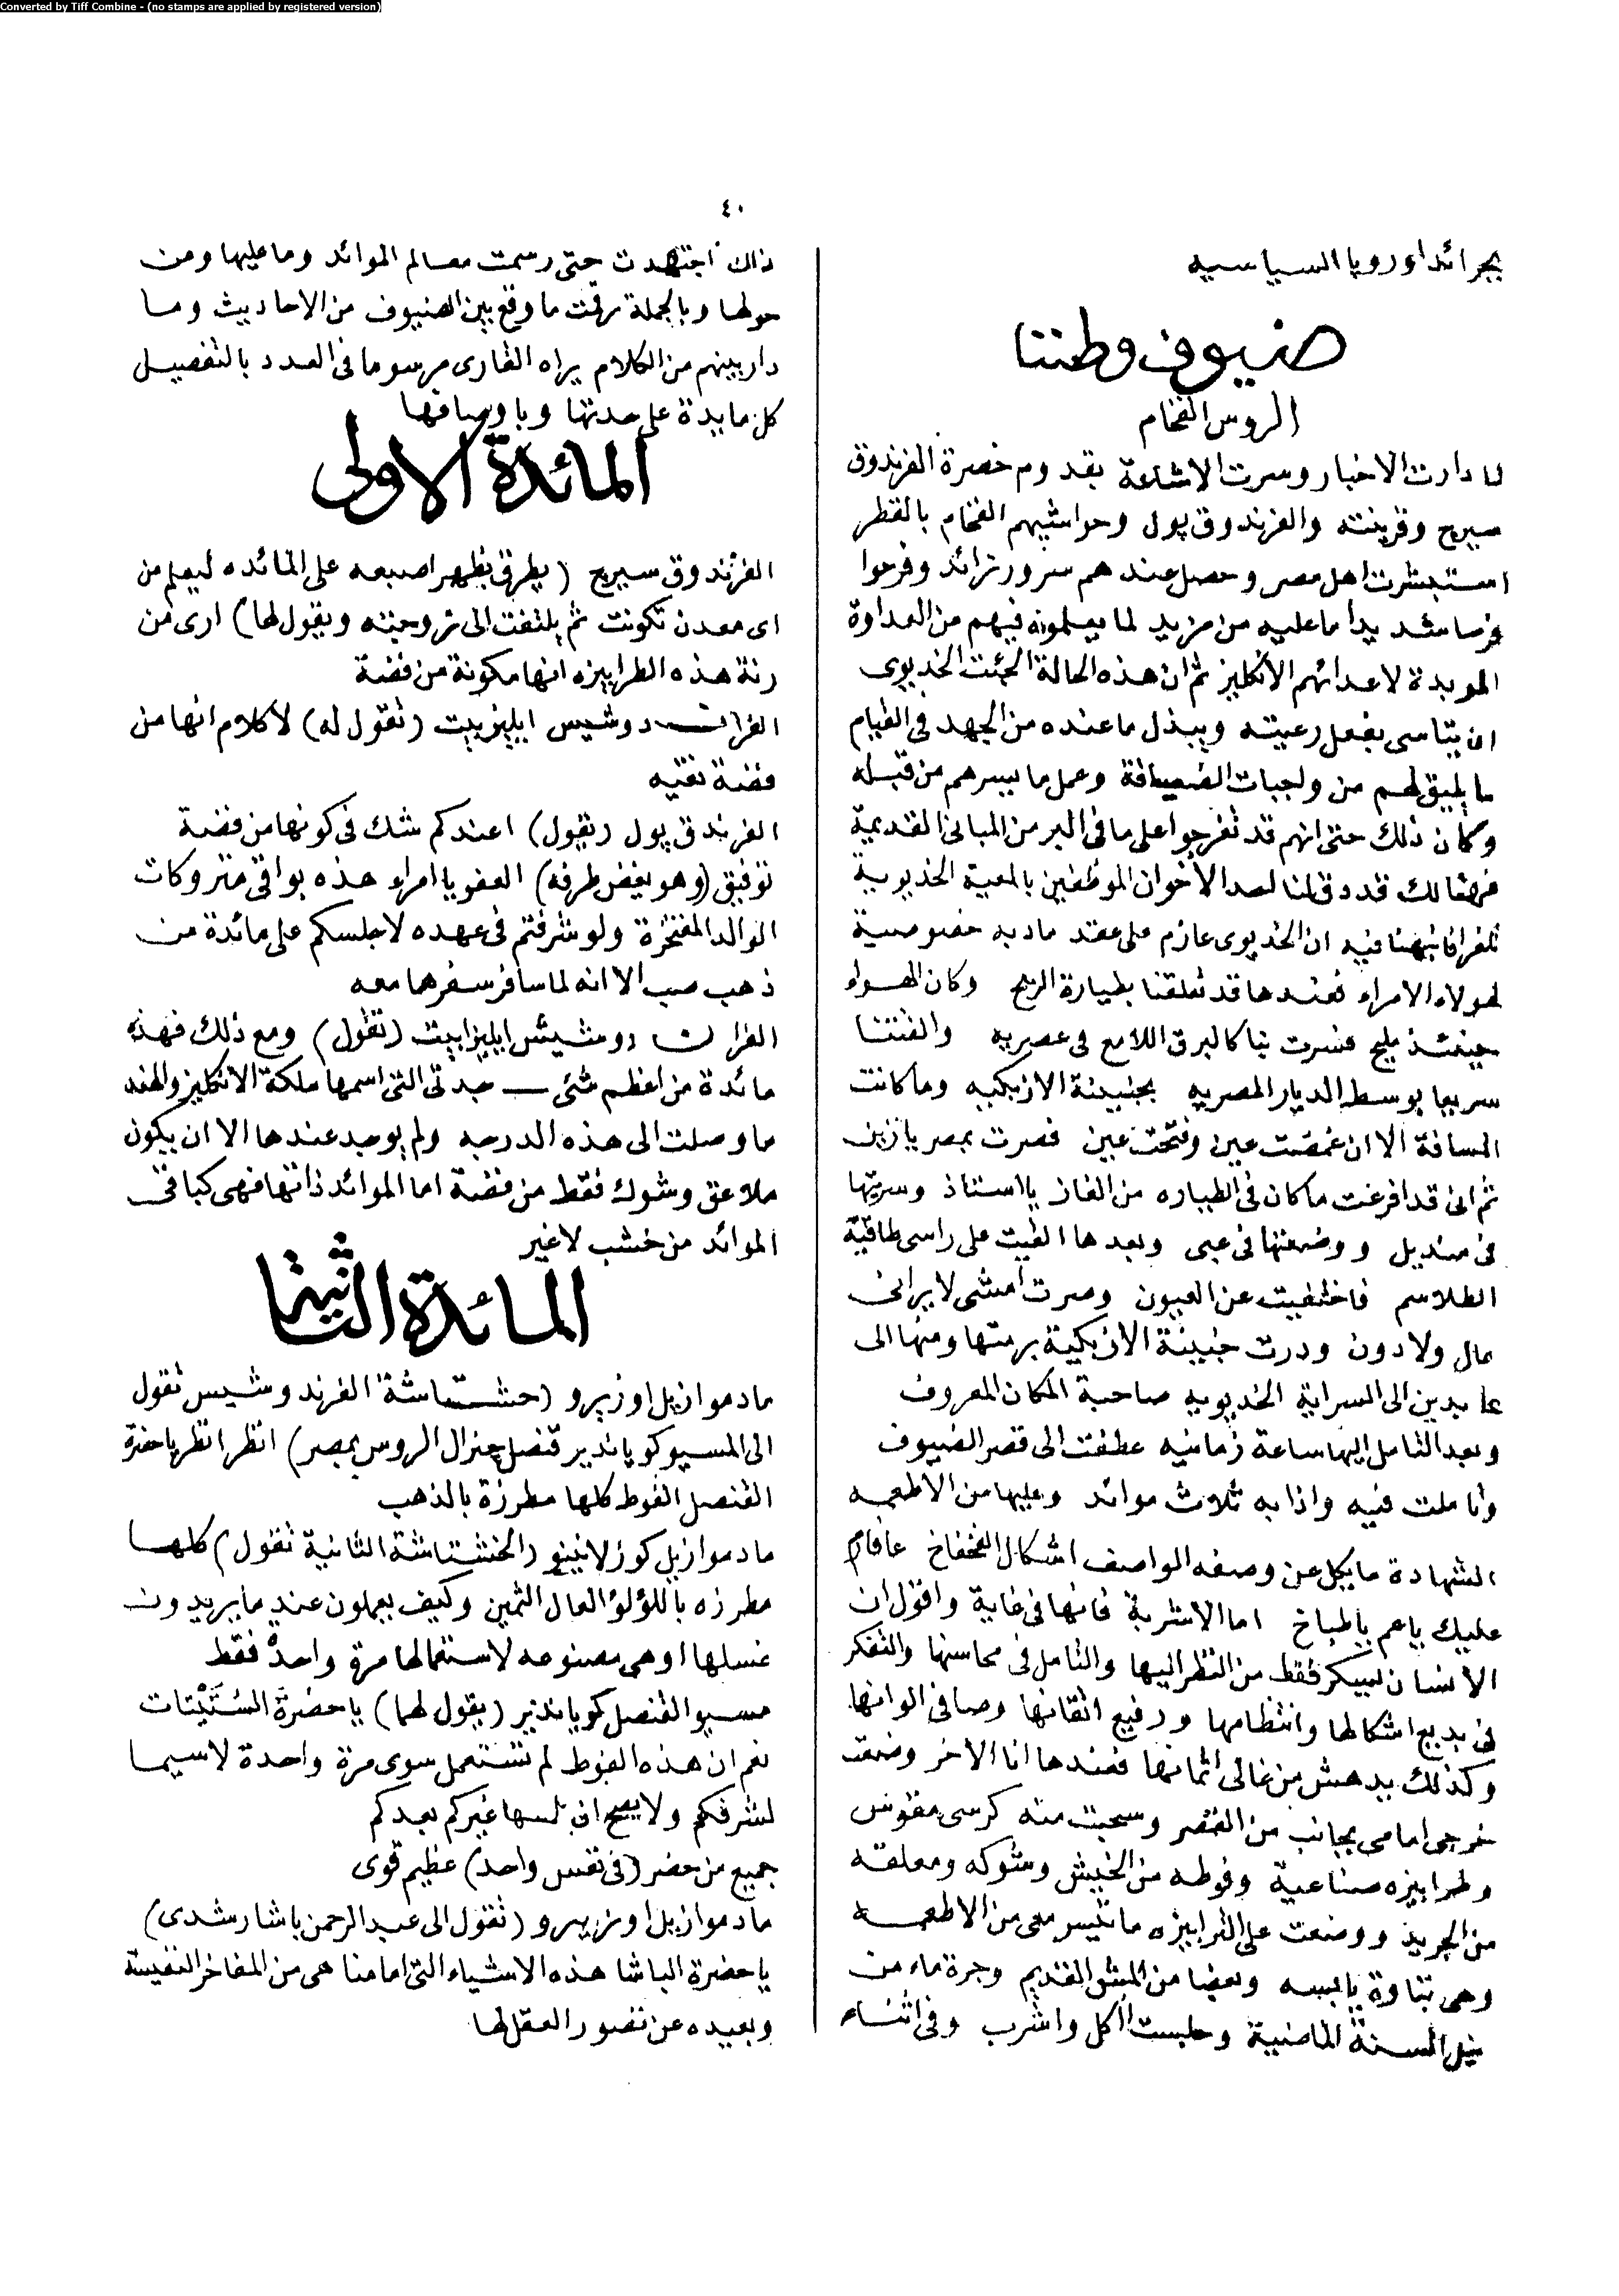 Converted by Tiff Combine - (no stamps are applied by registered version)
٤٠
بجرائد اوروپا السياسيه
ضيوف وطننا
الروس الفخام
لما دارت الاخبار وسرت الاشاعة بقدوم حضرة الغرندوق
سيرج وقرينته والغرندوق پول وحواشيهم الفخام بالقطر
استبشرت اهل مصر وحصل عندهم سرور زائد وفرحوا
فرحا شديدا ما عليه من مزيد لما يعلمونه فيهم من العداوة
الموبدة لاعدائهم الانكليز ثم ان هذه الحالة الجئت الخديوى
ان يتاسى بفعل رعيته ويبذل ما عنده من الجهد فى القيام
بما يليق لهم من واجبات الضيافة وعمل ما يسرهم من قبله
وكان ذلك حتى انهم قد تفرجوا على ما فى البر من المبانى القديمة
فهنالك قد دق لنا احد الاخوان الموظفين بالمعية الخديوية
تلغرافا نبهنا فيه ان الخديوى عازم على عقد مادبه خصوصية
لهولاء الامراء فعندها قد تعلقنا بطيارة الريح وكان الهواء
حينئذ مليح فسرت بنا كالبرق اللامع فى عصريه والقتنا
سريعا بوسط الديار المصريه بجنينة الازبكيه وما كانت
المسافة الا ان غمضت عين وفتحت عين فصرت بمصر يا زين
ثم انى قد افرغت ما كان فى الطياره من الغاز يا استاذ وسريتها
فى منديل ووضعتها فى عبى وبعدها القيت على راسى طاقية
الطلاسم فاختفيت عن العيون وصرت امشى لا يرانى
عال ولا دون ودرت جنينة الازبكية برمتها ومنها الى
عابدين الى السراية الخديويه صاحبة المكان المعروف
وبعد التامل اليها ساعة زمانيه عطفت الى قصر الضيوف
وتاملت فيه واذا به ثلاث موائد وعليها من الاطعمه
الشهادة ما يكل عن وصفه الواصف اشكال الفخفاخ عافارم
عليك يا عم يا طباخ اما الاشربة فانها فى غاية واقول ان
الانسان ليسكر فقط من النظر اليها والتامل فى محاسنها والتفكر
فى بديع اشكالها وانتظامها ورفيع اتقانها وصافى الوانها
وكذلك يدهش من غالى اثمانها فعندها انا الاخر وضعت
خرجى امامى بجانب من القصر وسحبت منه كرسى مقوس
وطرابيزه صناعية وفوطه من الخيش وشوكه ومعلقه
من الجريد ووضعت على الترابيزه ما تيسر معى من الاطعمه
وهى بتاوة يابسه وبعضا من المش القديم وجرة ماء من
نيل السنة الماضية وجلست أاكل واشرب وفى اثناء
ذلك اجتهدت حتى رسمت معالم الموائد وما عليها ومن
حولها وبالجملة رقمت ما وقع بين الضيوف من الاحاديث وما
دار بينهم من الكلام يراه القارى مرسوما فى العدد بالتفصيل
كل مايدة على حدتها وباوصافها
المائدة الاولى
الغرندوق سيرج (يطرق بظهر اصبعه على المائده ليعلم من
اى معدن تكونت ثم يلتفت الى زوجته ويقول لها) ارى من
رنة هذه الطرابيزه انها مكونة من فضة
الغراند دوشيس ايليزبيت (تقول له) لا كلام انها من
فضة نقيه
الغرندق پول (يقول) اعندكم شك فى كونها من فضة
توفيق (وهو يغض طرفه) العفو يا امراء هذه بواقى متروكات
الوالد المفتخرة ولو شرفتم فى عهده لاجلسكم على مائدة من
ذهب صب الا انه لما سافر سفرها معه
الغراند دوشيس ايليزابيت (تقول) ومع ذلك فهذه
مائدة من اعظم شئى جدتى التى اسمها ملكة الانكليز والهند
ما وصلت الى هذه الدرجه ولم يوجد عندها الا ان يكون
ملاعق وشوك فقط من فضة اما الموائد ذاتها فهى كباقى
الموائد من خشب لا غير
المائدة الثانية
مادموازيل اوزيرو (حشتاشة الغرندوشيس تقول
الى المسيو كوياندير قنصل چنرال الروس بمصر) انظر انظر يا حضرة
القنصل الفوط كلها مطرزة بالذهب
مادموازيل كوزلانينو (الخشتاشة الثانية تقول) كلها
مطرزه باللؤلؤ العال الثمين وكيف يعملون عند ما يريدون
غسلها اوهى مصنوعه لاستعمالها مرة واحدة فقط
مسيو القنصل كوياندير (يقول لهما) يا حضرة الستيتات
نعم ان هذه الفوط لم تستعمل سوى مرة واحدة لاسيما
لشرفكم ولا يصح ان يلمسها غيركم بعدكم
جميع من حضر (فى نفس واحد) عظيم قوى
مادموازيل اوزيرو (تقول الى عبد الرحمن باشا رشدى)
يا حضرة الباشا هذه الاشياء التى امامنا هى من المفاخر النفيسة
وبعيده عن تصور العقل لها